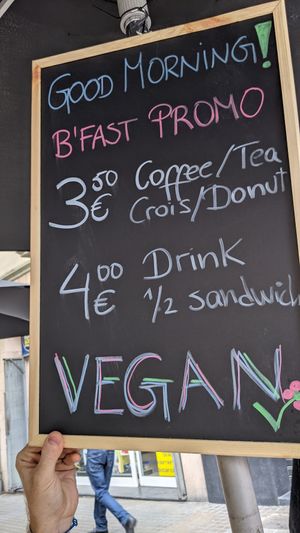 GOOD MORNING!
B'FAST PROMO
3 50 € Coffee/Tea
Crois/Donut
4 00 € Drink
1/2 sandwich
VEGAN